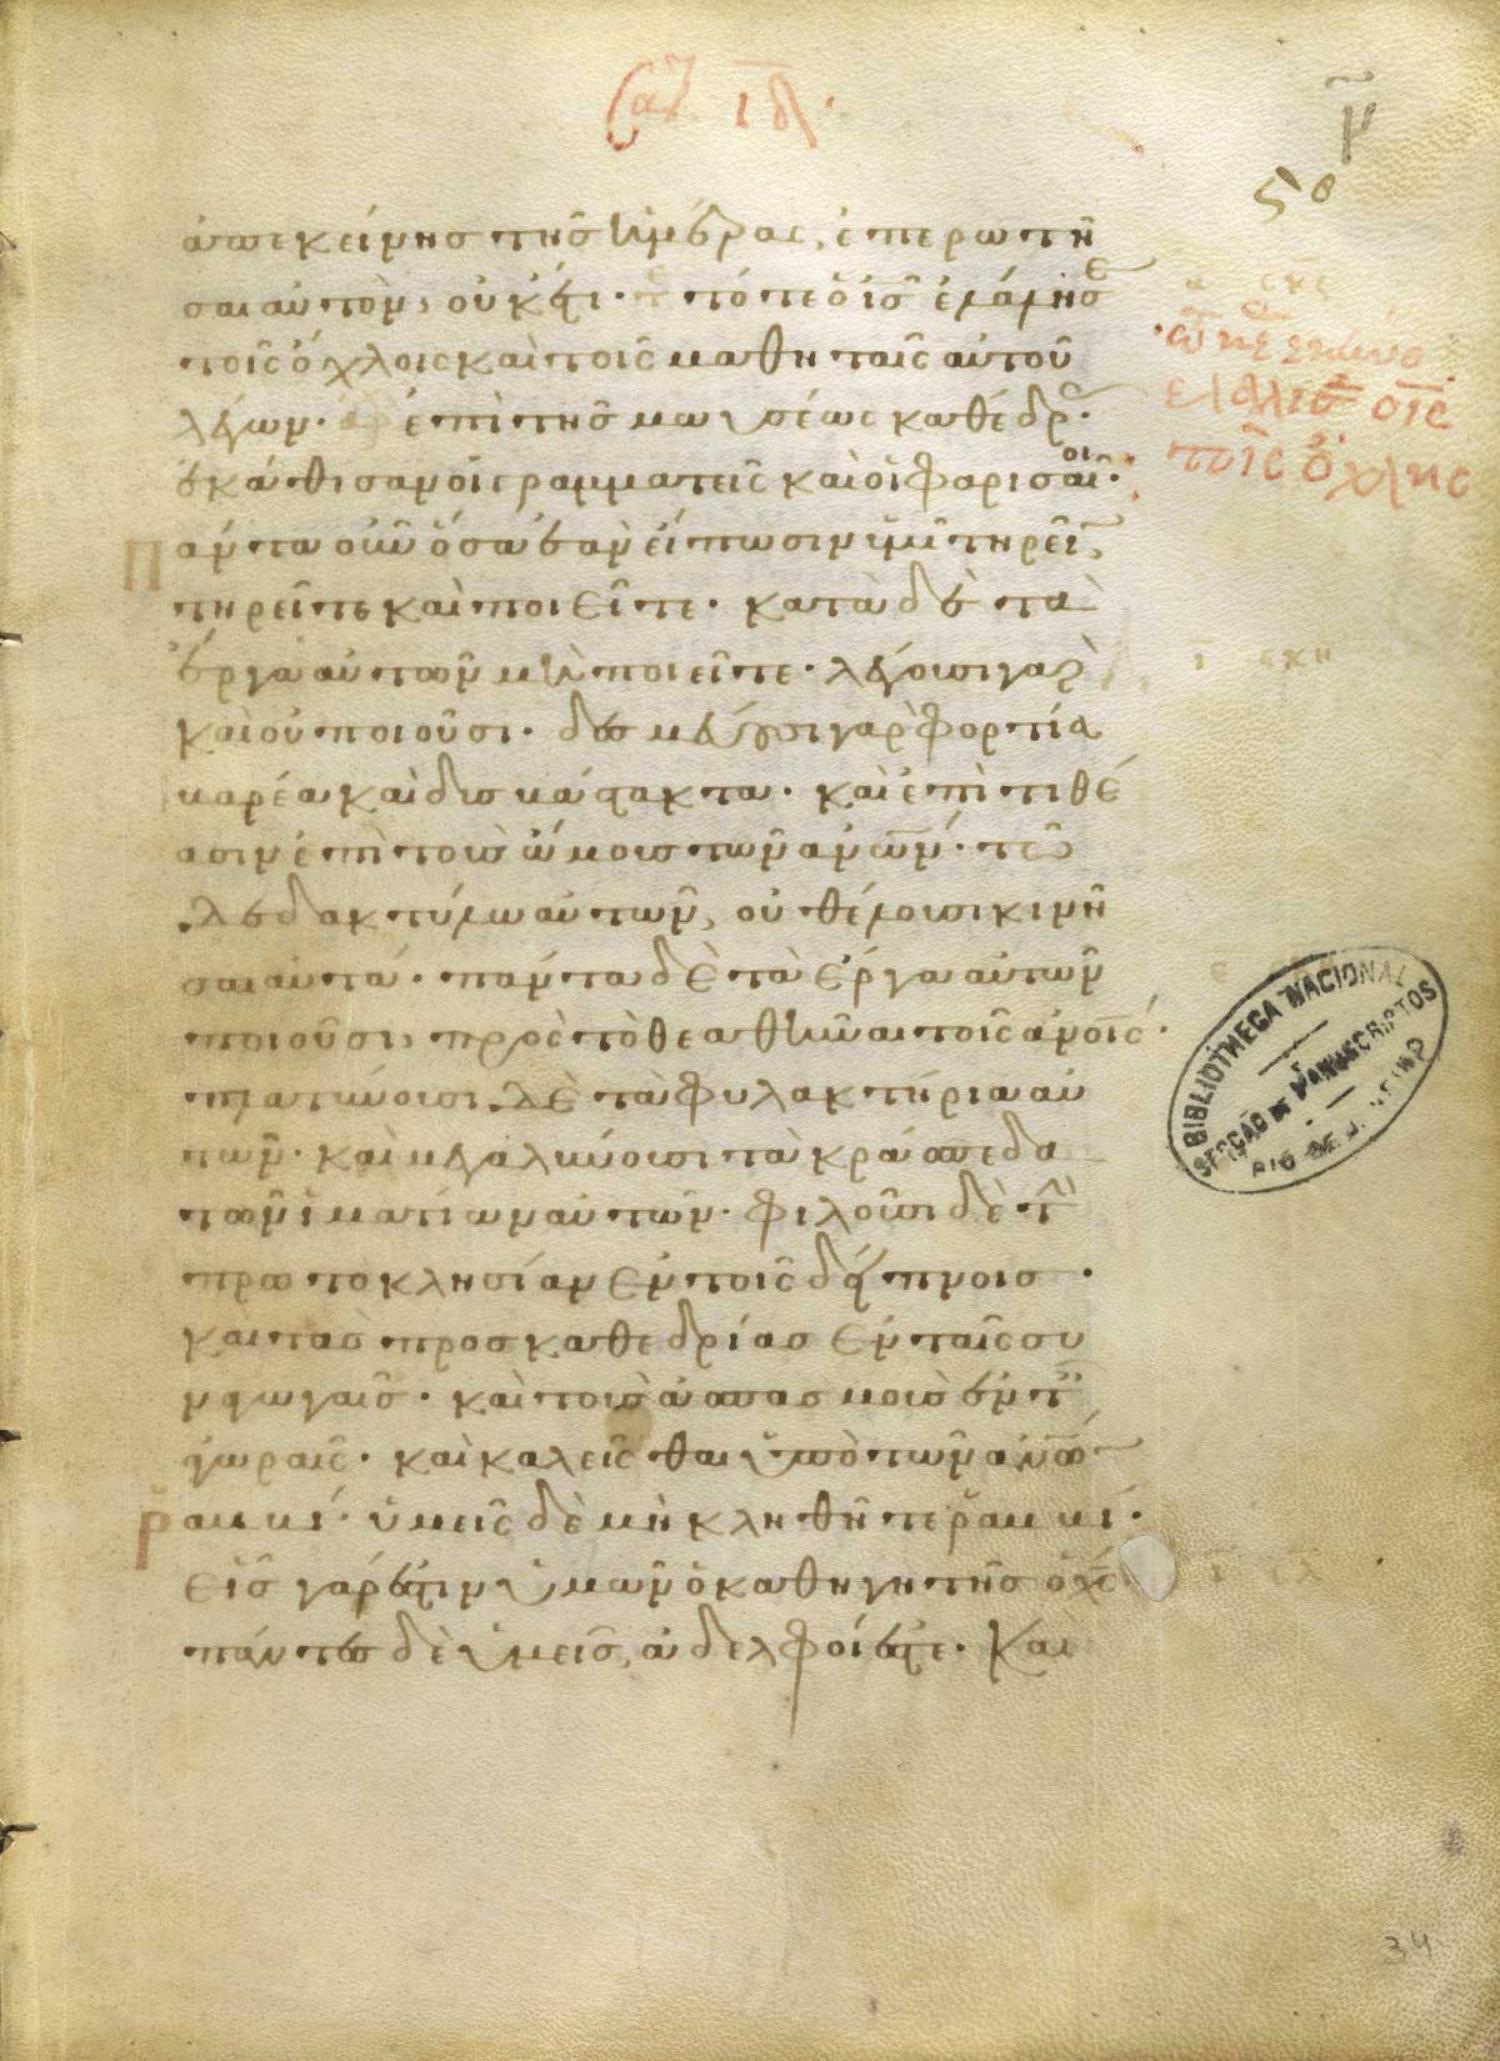 Σαβ ιδ
μ
ἀπεκείνησ τῆσ ἡμέρας, ἐπερωτῆ
σαι αὐτὸν, οὐκέτι· τότε ὁ ισ ἐλάλησε
τοῖς ὄχλοις καὶ τοῖς μαθηταῖς αὐτοῦ
λέγων· ἐπὶ τῆσ μωυσέως καθέδρ·
ἐκάθισαν οἱ γραμματεῖς καὶ οἱ φαρισαῖοι·
Πάντα οὖν ὅσα ἐὰν εἴπωσιν ὑμῖ τηρεῖ,
τηρεῖτε καὶ ποιεῖτε· κατὰ δὲ τὰ
ἔργα αὐτῶν μὴ ποιεῖτε· λέγουσι γὰρ
καὶ οὐ ποιοῦσι· δεσμεύουσι γὰρ φορτία
βαρέα καὶ δυσβάστακτα· καὶ ἐπιτιθέ
ασιν ἐπὶ τοὺσ ὤμουσ τῶν ανων· τῶ
δὲ δακτύλω αὐτῶν, οὐ θέλουσι κινῆ
σαι αυτά· πάντα δὲ τὰ ἔργα αὐτῶν
ποιοῦσι, πρὸς τὸ θεαθῆναι τοῖς ανοις·
πλατύνουσι δὲ τὰ φυλακτήρια αὐ
τῶν· καὶ μεγαλύνουσι τὰ κράσπεδα
τῶν ἱματίων αὐτῶν· φιλοῦσι δὲ τ
πρωτοκλησίαν ἐν τοῖς δείπνοισ·
καὶ τὰσ προσκαθεδρίασ ἐν ταῖς συ
ναγωγαῖσ· καὶ τοὺσ ἀσπασμοὺσ ἐν τ
ἀγοραῖς· καὶ καλεῖσθαι ὑπὸ τῶν ανω
ῥαββί· ὑμεῖς δὲ μὴ κληθῆτε ῥαββί·
εἷσ γάρ ἐστιν ὑμῶν ὁ καθηγητὴσ ὁ χς
πάντεσ δὲ ὑμεῖσ, ἀδελφοί ἐστε· καὶ
τοῖς ὄχλης
BIBLIOTHECA NACIONAL
SECÇÃO DE MANUSCRIPTOS
RIO DE JANEIRO
34